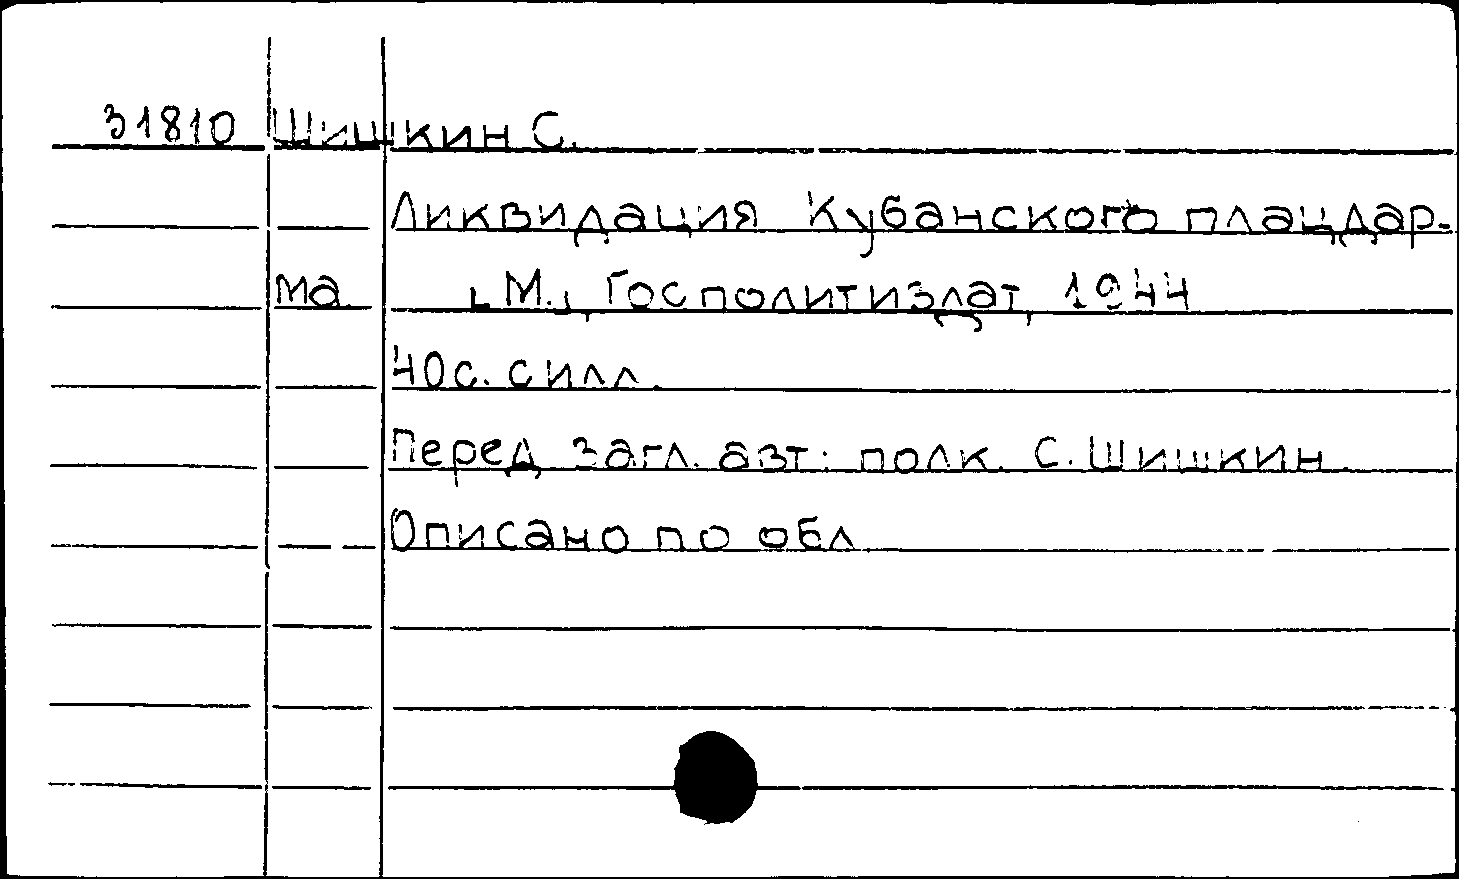 31810 Шишкин С.
Ликвидация Кубанского плацдар-
ма. [М.], Госполитиздат, 1944
40с. силл.
Перед загл. авт: полк. С. Шишкин.
Описано по обл